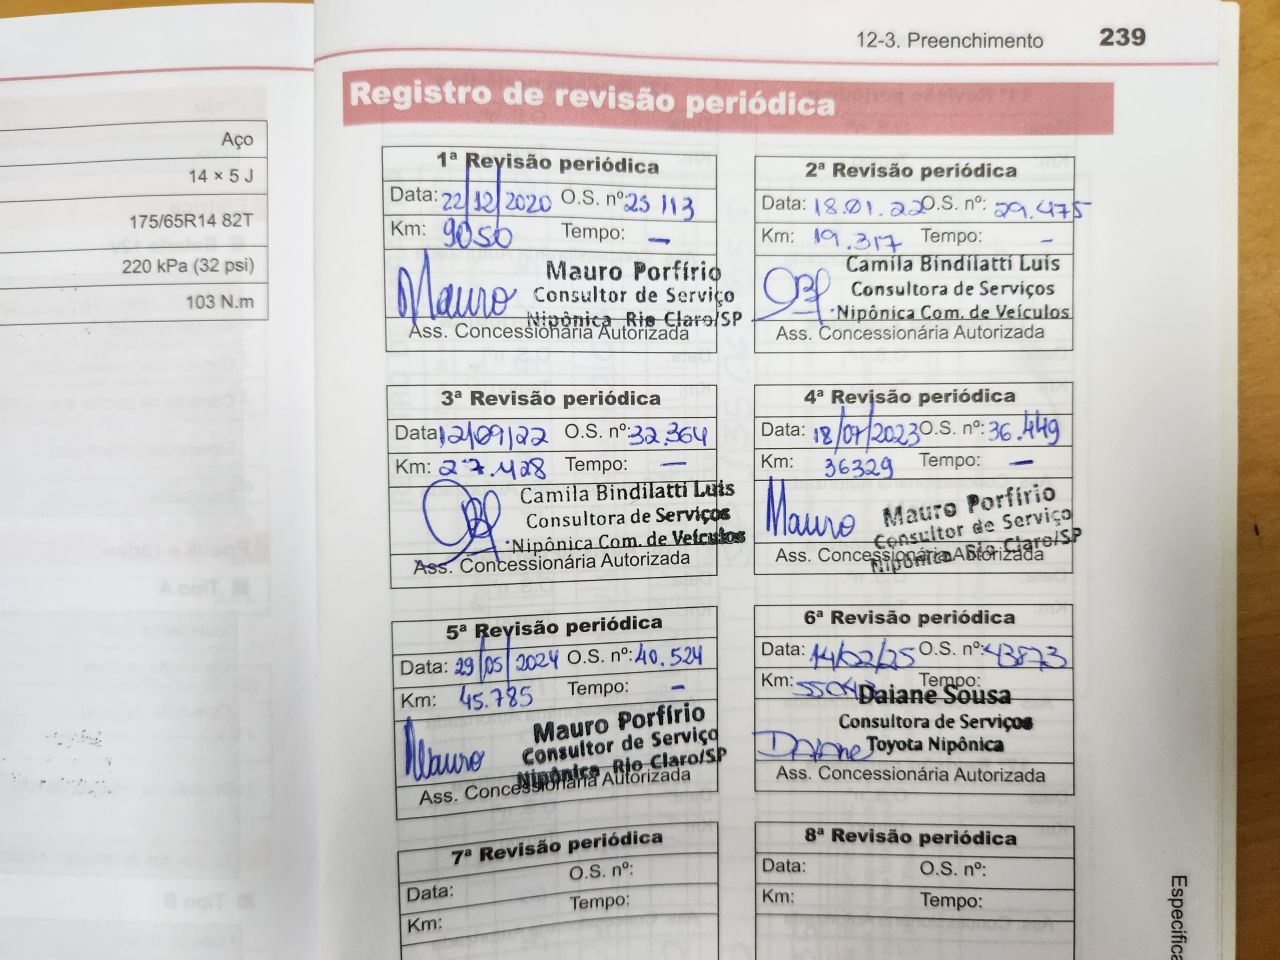 Aço
14 × 5 J
175/65R14 82T
220 kPa (32 psi)
103 N.m
12-3. Preenchimento 239
Registro de revisão periódica
1ª Revisão periódica
Data: 22/12/2020 O.S. nº: 25 113
Km: 9050 Tempo: —
Mauro Mauro Porfírio
Consultor de Serviço
Nipônica Rio Claro/SP
Ass. Concessionária Autorizada
2ª Revisão periódica
Data: 18.01.22 O.S. nº: 29.475
Km: 19.317 Tempo: -
Camila Bindilatti Luis
Consultora de Serviços
Nipônica Com. de Veículos
Ass. Concessionária Autorizada
3ª Revisão periódica
Data: 12/09/22 O.S. nº: 32.364
Km: 27.428 Tempo: —
Camila Bindilatti Luis
Consultora de Serviços
Nipônica Com. de Veículos
Ass. Concessionária Autorizada
4ª Revisão periódica
Data: 18/07/2023 O.S. nº: 36.449
Km: 36329 Tempo: —
Mauro Mauro Porfírio
Consultor de Serviço
Nipônica Rio Claro/SP
Ass. Concessionária Autorizada
5ª Revisão periódica
Data: 29/05/2024 O.S. nº: 40.524
Km: 45.785 Tempo: -
Mauro Mauro Porfírio
Consultor de Serviço
Nipônica Rio Claro/SP
Ass. Concessionária Autorizada
6ª Revisão periódica
Data: 14/02/25 O.S. nº: 43873
Km: 55043 Tempo:
Daiane Sousa
Consultora de Serviços
Daiane Toyota Nipônica
Ass. Concessionária Autorizada
7ª Revisão periódica
Data: O.S. nº:
Km: Tempo:
8ª Revisão periódica
Data: O.S. nº:
Km: Tempo:
Especifica